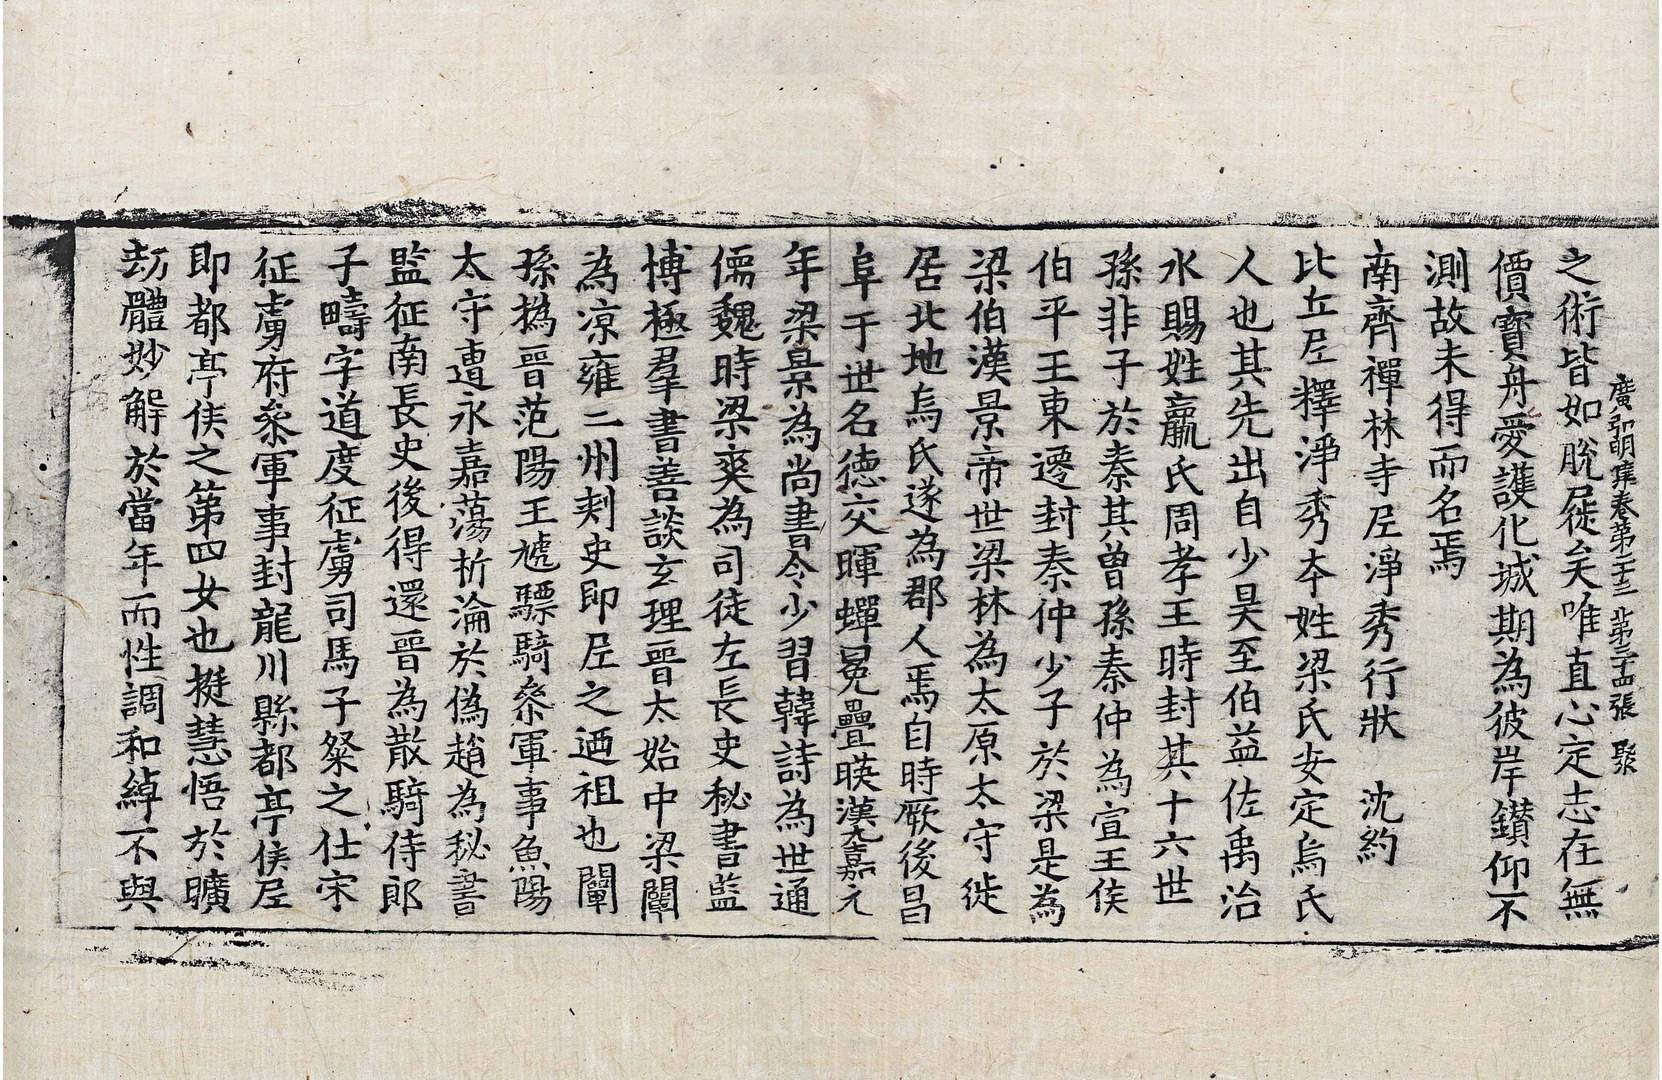 廣弘明集卷第二十三 第三十四張 聚
之術皆如脫屣矣唯直心定志在無
價寶舟愛護化城期為彼岸鑚仰不
測故未得而名焉
南齊禪林寺尼淨秀行狀 沈約
比丘尼釋淨秀本姓梁氏安定烏氏
人也其先出自少昊至伯益佐禹治
水賜姓嬴氏周孝王時封其十六世
孫非子於秦其曾孫秦仲為宣王侯
伯平王東遷封秦仲少子於梁是為
梁伯漢景帝世梁林為太原太守徙
居北地烏氏遂為郡人焉自時厥後昌
阜于世名德交暉蟬冕疊暎漢元嘉元
年梁景為尚書令少習韓詩為世通
儒魏時梁爽為司徒左長史秘書監
博極羣書善談玄理晉太始中梁闡
為涼雍二州刾史即尼之迺祖也闡
孫撝晉范陽王虓驃騎叅軍事魚陽
太守遭永嘉蕩析淪於偽趙為秘書
監征南長史後得還晉為散騎侍郎
子疇字道度征虜司馬子粲之仕宋
征虜府叅軍事封龍川縣都亭侯尼
即都亭侯之第四女也挺慧悟於曠
劫體妙解於當年而性調和綽不與